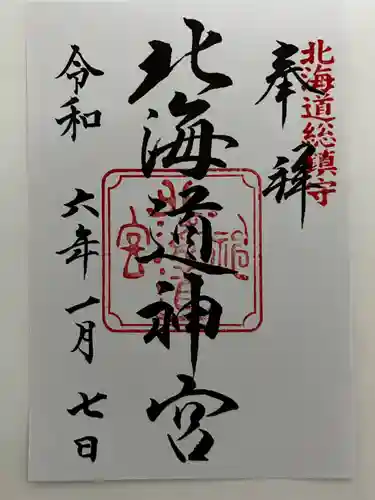 北海道総鎮守
奉拝
北海道神宮
北海道神宮
令和六年一月七日